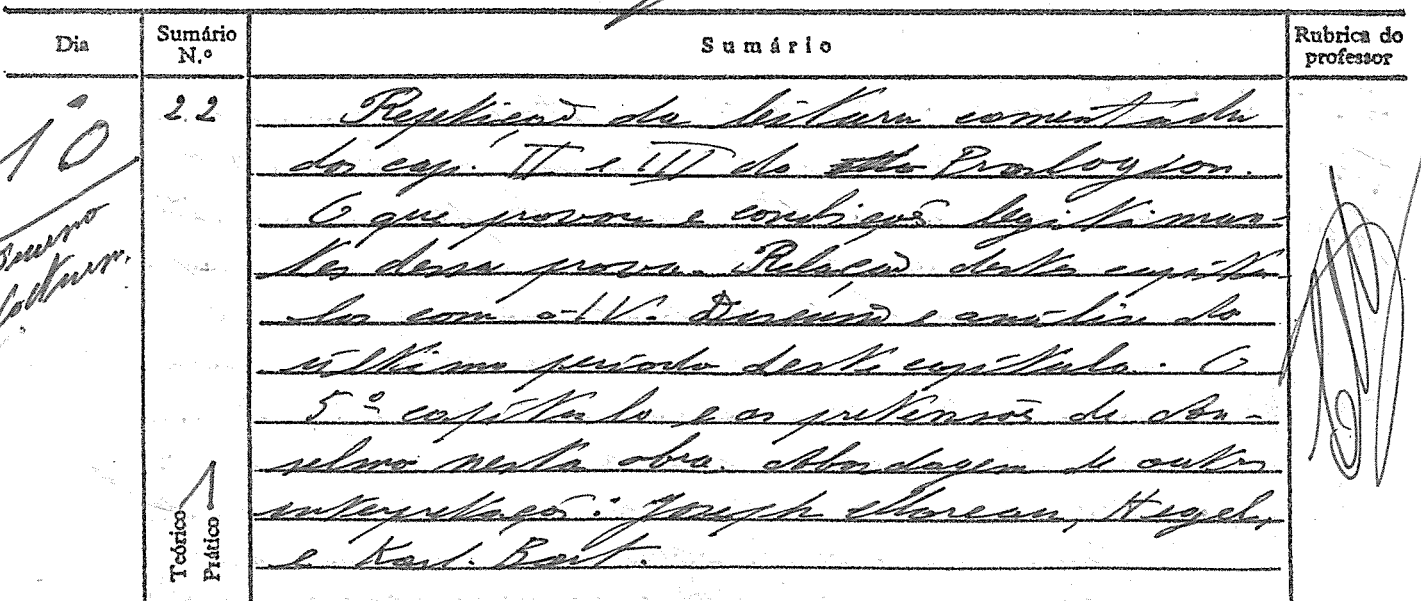 Dia Sumário N.º Sumário Rubrica do professor
10 22 Repetição da leitura comentada
dos cap. II e III do Proslogion.
O que provou e condições legitiman-
tes dessa prova. Relação destes capítu-
los com o IV. Discussão e análise do
último período deste capítulo. O
5º capítulo e as pretensões de An-
selmo nesta obra. Abordagem de outras
interpretações: Joseph Moreau, Hegel,
e Karl. Bart.
Teórico
Prático